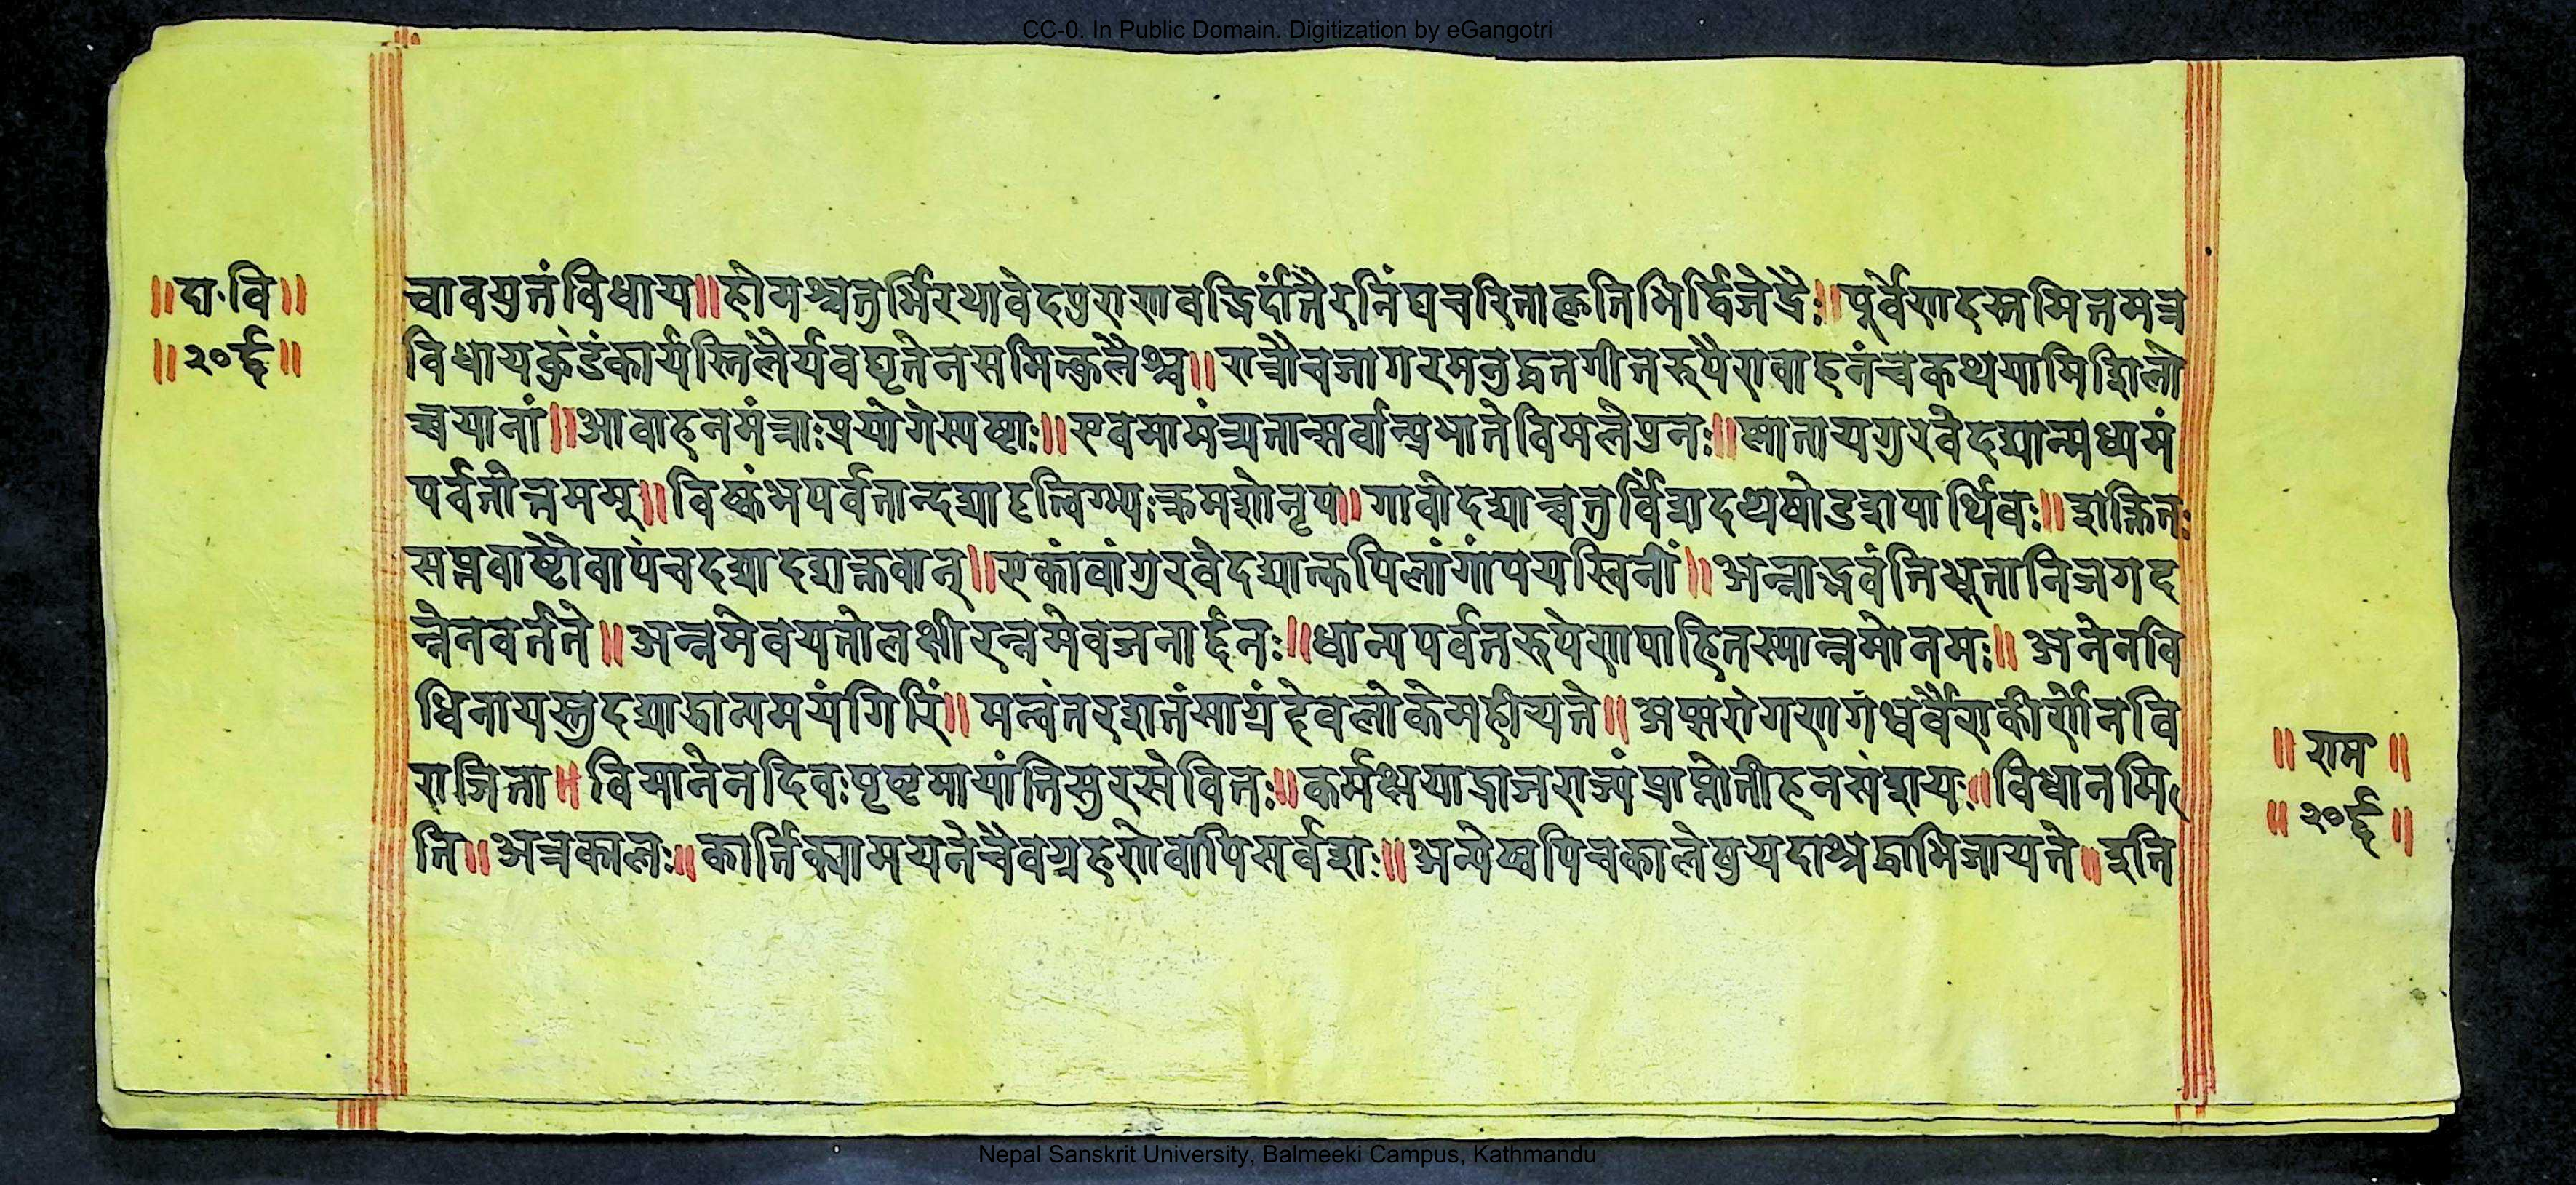 CC-0. In Public Domain. Digitization by eGangotri
॥दा॰वि॥
॥२०६॥
चावयुतंविधाय॥होमश्चतुर्भिरथावेदपुराणवद्भिर्दांतैरनिंद्यचरिताकृतिभिर्द्विजेंद्रैः॥पूर्वेणहस्तमितमत्र
विधायकुंडंकार्यस्तिलैर्यवघृतेनसमित्कुशैश्च॥रात्रौचजागरमनुद्धतगीतरूपैरावाहनंचकथयामिशिलो
च्चयानां॥आवाहनमंत्राःप्रयोगेस्पष्टाः॥एवमामंत्र्यतान्सर्वान्प्रभातेविमलेपुनः॥स्नातायगुरवेदद्यान्मध्यमं
पर्वतोत्तमम्॥विष्कंभपर्वतान्दद्यादृत्विग्भ्यःक्रमशोनृप॥गावोदद्याच्चतुर्विंशदथषोडशपार्थिव॥शक्तितः
सप्तवाष्टौवापंचदद्यादशक्तवान्॥एकांवांगुरवेदद्यात्कपिलांगांपयस्विनीं॥अन्नाद्भवंतिभूतानिजगद
न्नेनवर्तते॥अन्नमेवयतोलक्ष्मीरन्नमेवजनार्द्दनः॥धान्यपर्वतरूपेणपाहितस्मान्नमोनमः॥अनेनवि
धिनायस्तुदद्याद्धान्यमयंगिरिं॥मन्वंतरशतंसाग्रंदेवलोकेमहीयते॥अप्सरोगणगंधर्वैराकीर्णेनवि
राजिता॥विमानेनदिवःपृष्टमायांतिसुरसेवितः॥कर्मक्षयाद्राजराज्यंप्राप्नोतीहनसंशयः॥विधानमि
ति॥अत्रकालः॥कार्त्तिक्यामयनेचैवग्रहणेवापिसर्वशः॥अन्येष्वपिचकालेषुयदाश्रद्धाभिजायते॥इति
॥राम॥
॥२०६॥
Nepal Sanskrit University, Balmeeki Campus, Kathmandu